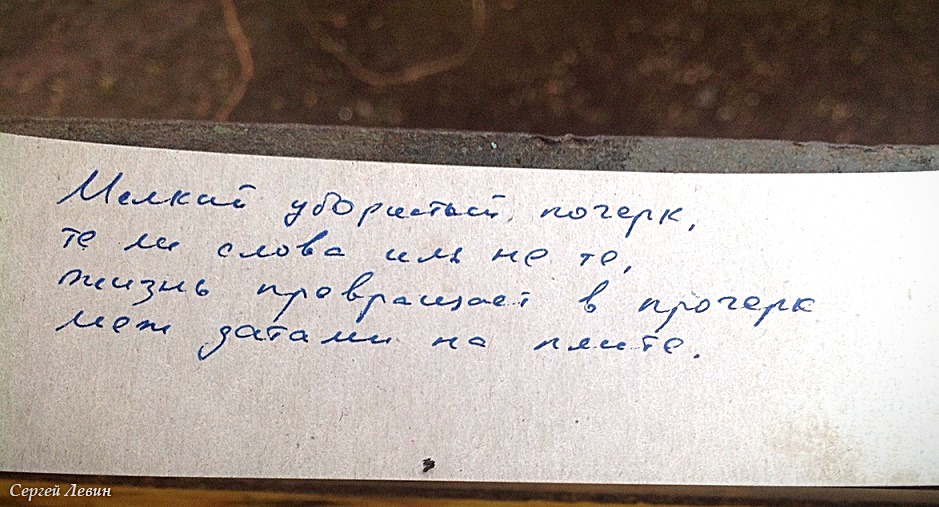 Мелкий убористый почерк,
те ли слова иль не те,
жизнь превращает в прочерк
меж датами на плите.
Сергей Левин